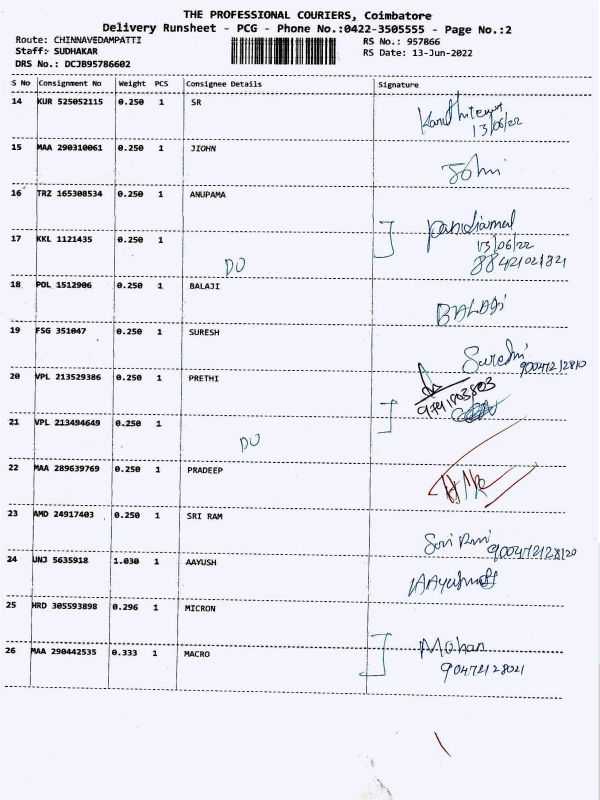 THE PROFESSIONAL COURIERS, Coimbatore
Delivery Runsheet - PCG - Phone No.:0422-3505555 - Page No.:2
Route: CHINNAVEDAMPATTI RS No.: 957866
Staff: SUDHAKAR RS Date: 13-Jun-2022
DRS No.: DCJB95786602
S No Consignment No Weight PCS Consignee Details Signature
14 KUR 525052115 0.250 1 SR
13/06/22
15 MAA 290310061 0.250 1 JIOHN
John
16 TRZ 165308534 0.250 1 ANUPAMA
17 KKL 1121435 0.250 1
13/06/22
DO
18 POL 1512906 0.250 1 BALAJI
BALAJi
19 FSG 351047 0.250 1 SURESH
20 VPL 213529386 0.250 1 PRETHI
21 VPL 213494649 0.250 1
DO
22 MAA 289639769 0.250 1 PRADEEP
23 AMD 24917403 0.250 1 SRI RAM
24 UNJ 5635918 1.030 1 AAYUSH
25 HRD 305593898 0.296 1 MICRON
26 MAA 290442535 0.333 1 MACRO
Mohan